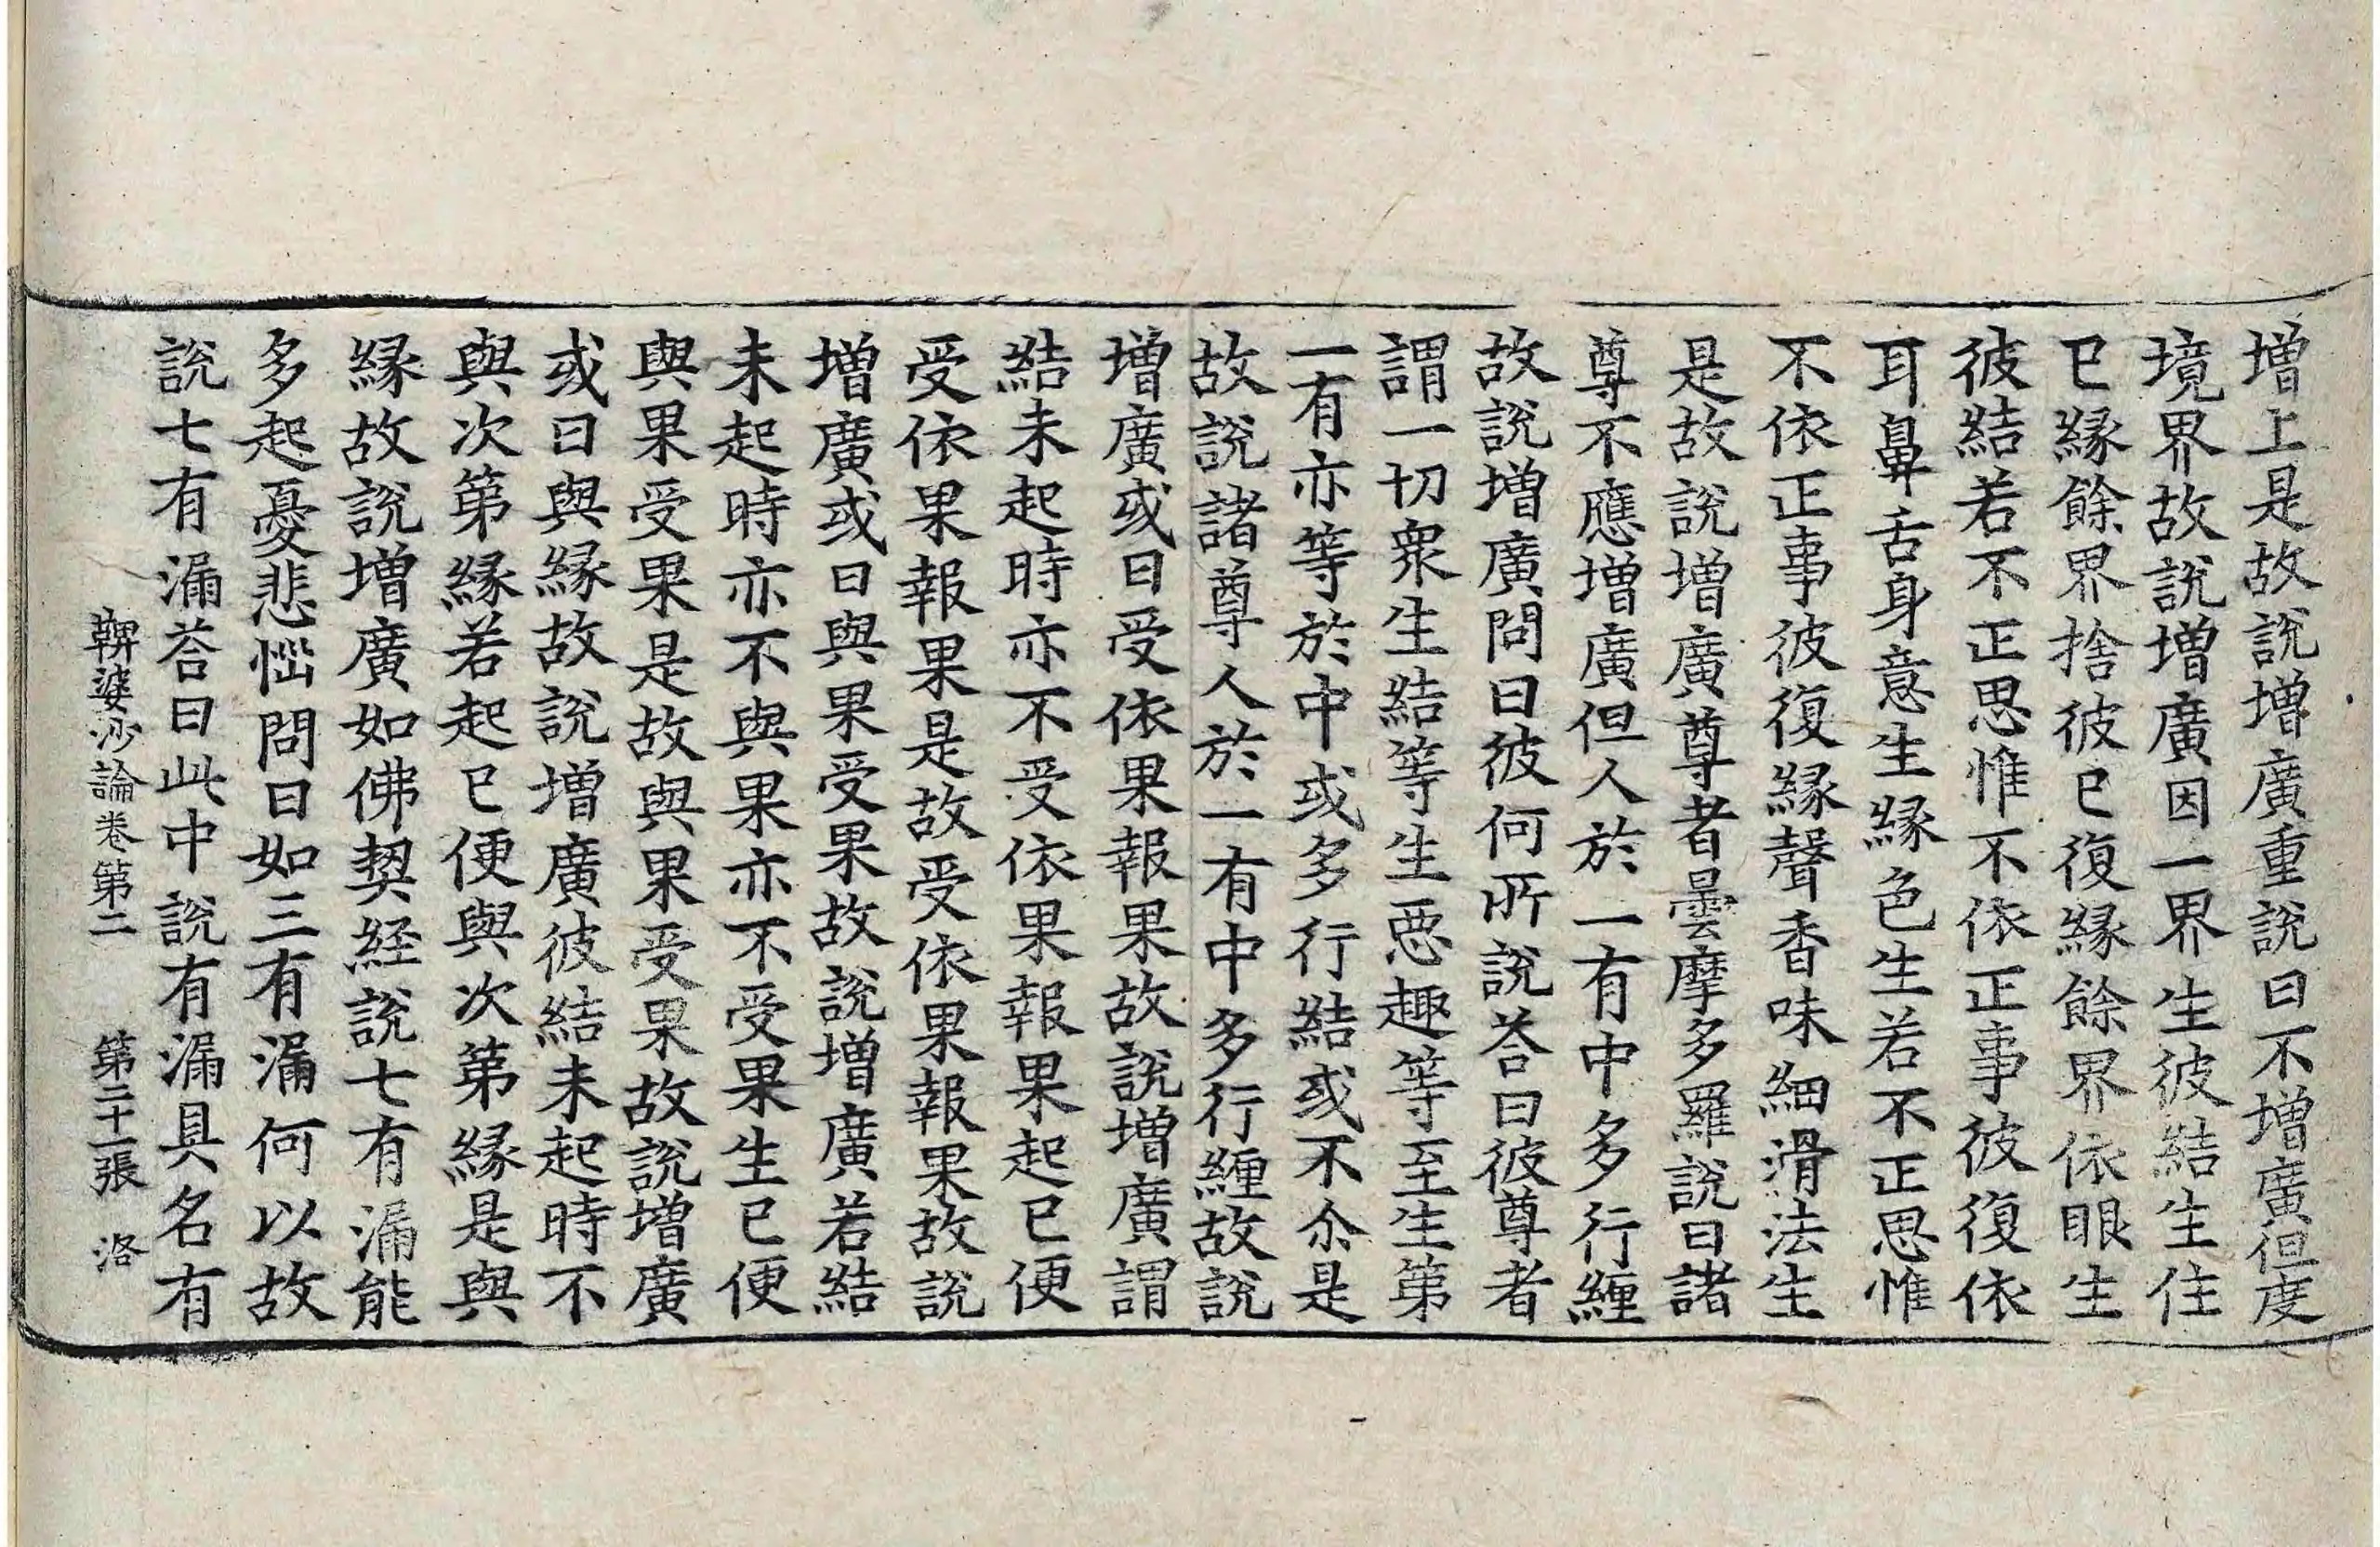 增上是故說增廣重說曰不增廣但度
境界故說增廣因一界生彼結生住
已緣餘界捨彼已復緣餘界依眼生
彼結若不正思惟不依正事彼復依
耳鼻舌身意生緣色生若不正思惟
不依正事彼復緣聲香味細滑法生
是故說增廣尊者曇摩多羅說曰諸
尊不應增廣但人於一有中多行纏
故說增廣問曰彼何所說荅曰彼尊者
謂一切眾生結等生惡趣等至生第
一有亦等於中或多行結或不尒是
故說諸尊人於一有中多行纏故說
增廣或曰受依果報果故說增廣謂
結未起時亦不受依果報果起已便
受依果報果是故受依果報果故說
增廣或曰與果受果故說增廣若結
未起時亦不與果亦不受果生已便
與果受果是故與果受果故說增廣
或曰與緣故說增廣彼結未起時不
與次第緣若起已便與次第緣是與
緣故說增廣如佛契経說七有漏能
多起憂悲惱問曰如三有漏何以故
說七有漏荅曰此中說有漏具名有
鞞婆沙論卷第二　第二十一張　洛